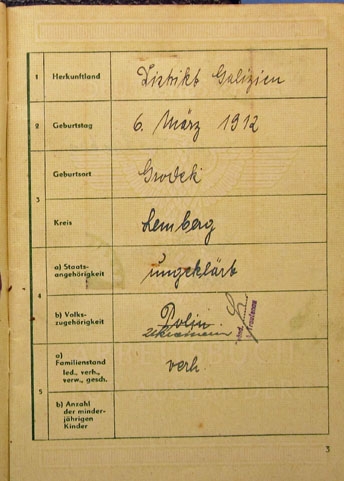 1 Herkunftland Distrikt Galizien
2 Geburtstag 6. März 1912
3 Geburtsort Grodek
Kreis Lemberg
4 a) Staats-
angehörigkeit ungeklärt
b) Volks-
zugehörigkeit Polin
Ukrainerin
5 a)
Familienstand verh.
led., verh.,
verw., gesch.
b) Anzahl
der minder-
jährigen
Kinder
3